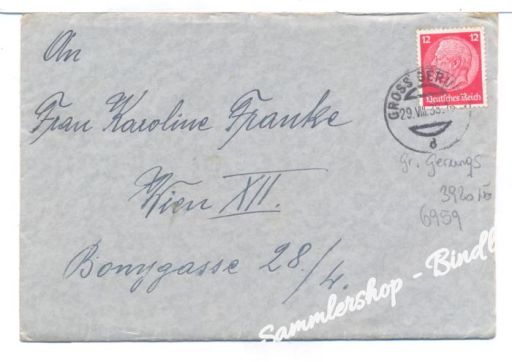 An
Frau Karoline Franke
Wien XII.
Bonygasse 28/4.
12 12
Deutsches Reich
GROSS GERU
29.VIII.38
d
Gr. Gerungs
3920
6959
Sammlershop - Bindl